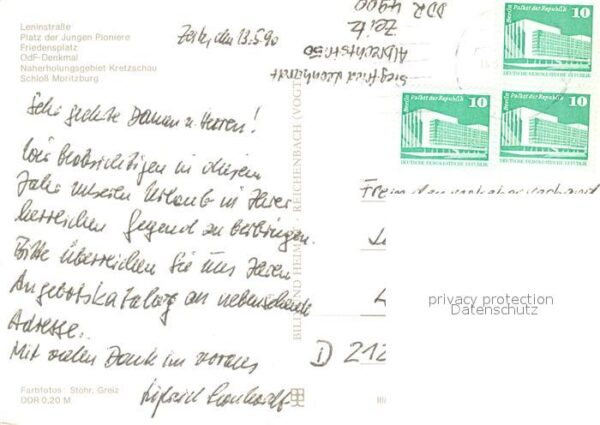 Leninstraße
Platz der Jungen Pioniere
Friedensplatz
OdF-Denkmal
Naherholungsgebiet Kretzschau
Schloß Moritzburg
Zeitz, den 13.5.90
Sehr geehrte Damen u. Herren!
Wir beabsichtigen in diesem
Jahr unseren Urlaub in Ihrer
herrlichen Gegend zu verbringen.
Bitte überreichen Sie uns Ihren
Angebotskatalog an nebenstehende
Adresse.
Mit vielen Dank im voraus
Siegfried Leonhardt
Farbfotos: Stöhr, Greiz
DDR 0,20 M
BILD UND HEIM REICHENBACH (VOGTL
Siegfried Leonhardt
Albrechtstr. 50
Zeitz
DDR 4900
Berlin Palast der Republik 10
DEUTSCHE DEMOKRATISCHE REPUBLIK
Berlin Palast der Republik 10
DEUTSCHE DEMOKRATISCHE REPUBLIK
Berlin Palast der Republik 10
DEUTSCHE DEMOKRATISCHE REPUBLIK
D 212
privacy protection
Datenschutz